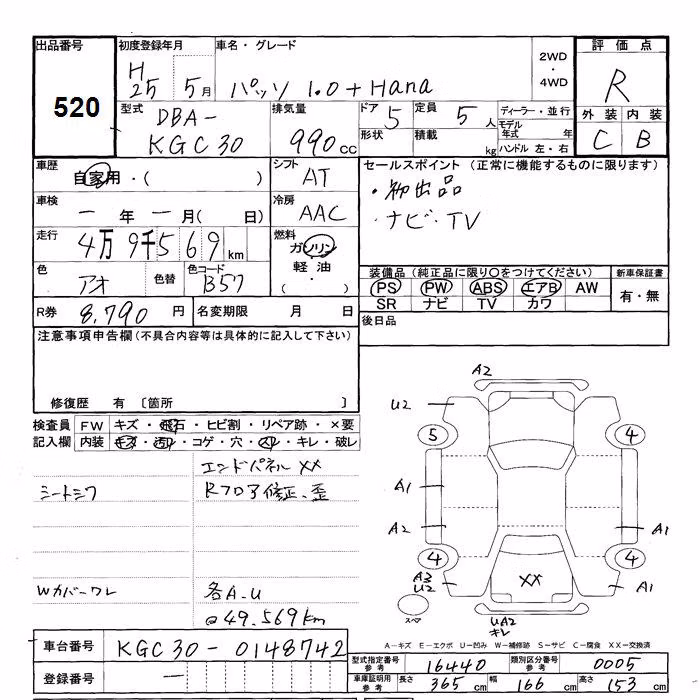 出品番号 520
初度登録年月 H 25 5月
車名・グレード パッソ 1.0 + Hana
2WD ・ 4WD
評価点 R
外装 C 内装 B
型式 DBA-KGC30
排気量 990cc
ドア 5 形状
定員 5人 積載 kg
ディーラー・並行
モデル年式 年
ハンドル 左・右
車歴 自家用・( )
シフト AT
車検 一年一月( 日)
冷房 AAC
走行 4万9千569km
燃料 ガソリン・軽油・( )
色 アオ 色替 色コード B57
R券 8,790円 名変期限 月 日
セールスポイント (正常に機能するものに限ります)
・初出品
・ナビ・TV
装備品 (純正品に限り○をつけてください) 新車保証書
PS PW ABS エアB AW 有・無
SR ナビ TV カワ
後日品
注意事項申告欄(不具合内容等は具体的に記入して下さい)
修復歴 有 〔箇所 〕
検査員記入欄
FW キズ・飛石・ヒビ割・リペア跡・×要
内装 キズ・汚れ・コゲ・穴・スレ・キレ・破レ
エンドパネル XX
シートシワ Rフロア修正、歪
Wカバーワレ 各A.U
@49.569km
車台番号 KGC30-0148742
登録番号 一
A2
U2
5 4
A1
A2 A1
4 4
A3
U2 XX A1
スペア UA2
キレ
A-キズ E-エクボ U-凹み W-補修跡 S-サビ C-腐食 XX-交換済
型式指定番号 参考 16440 類別区分番号 参考 0005
車庫証明用 参考 長さ 365cm 幅 166cm 高さ 153cm